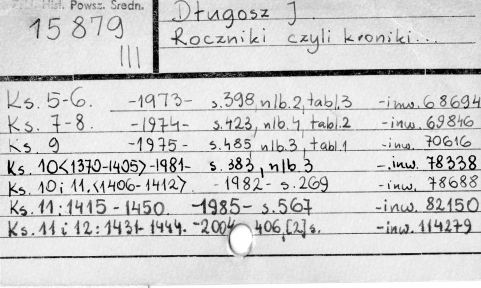 Hist. Powsz. Średn.
15 879
III
Długosz J.
Roczniki czyli kroniki...
Ks. 5-6. -1973- s.398, nlb.2, tabl.3 -inw. 68694
Ks. 7-8. -1974- s.423, nlb.4, tabl.2 -inw. 69846
Ks. 9 -1975- s.485 nlb.3, tabl.1 -inw. 70616
Ks. 10<1370-1405>-1981- s. 383, nlb.3 -inw. 78338
Ks. 10 i 11.<1406-1412> -1982- s.269 -inw. 78688
Ks. 11: 1415-1450. -1985- s.567 -inw. 82150
Ks. 11 i 12: 1431-1444. -2004 406,[2]s. -inw. 114279